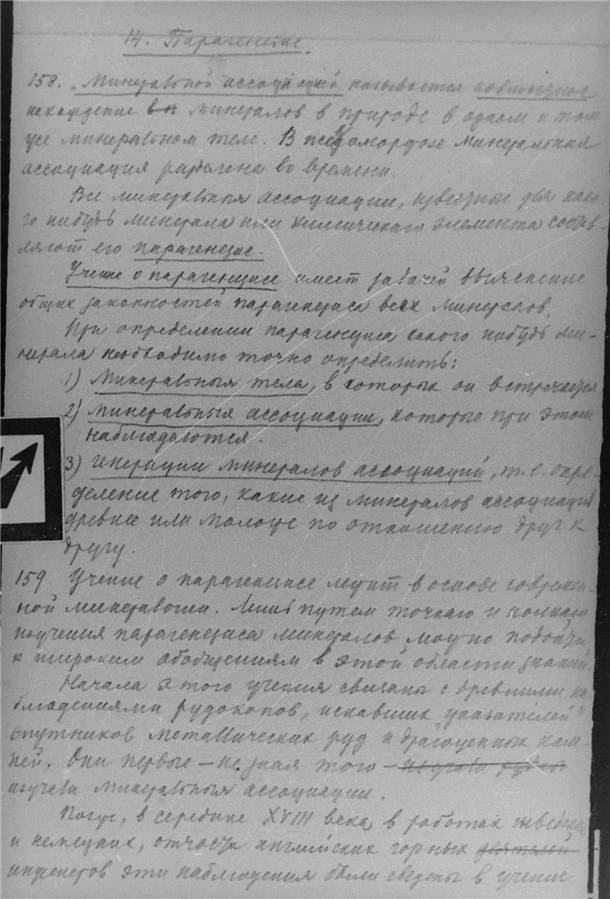 14. Парагенезис.
158. Минеральной ассоциацией называется совместное
нахождение минералов в природе в одном и том
же минеральном теле. В псевдоморфозе минеральная
ассоциация разделена во времени.
Все минеральныя ассоциации, известные для како-
го нибудь минерала или химическаго элемента состав-
ляют его парагенезис.
Учение о парагенезисе имеет задачей выяснение
общих законностей парагенезиса всех минералов.
При определении парагенезиса какого нибудь ми-
нерала необходимо точно определить:
1) Минеральныя тела, в которых он встречается
2) Минеральныя ассоциации, которые при этом
наблюдаются.
3) Генерации минералов ассоциаций, т.е. опре-
деление того, какие из минералов ассоциации
древнее или моложе по отношению друг к
другу.
159 Учение о парагенезисе лежит в основе современ-
ной минералогии. Лишь путем точнаго и полнаго
изучения парагенезиса минералов можно подойти
к широким обобщениям в этой области знаний.
Начала этого учения связаны с древними на-
блюдениями рудокопов, искавших "указателей"
спутников металлических руд и драгоценных кам-
ней. Они первые – не зная того –
изучали минеральныя ассоциации.
Позже, в середине XVIII века в работах шведских
и немецких, отчасти английских горных деятелей
инженеров эти наблюдения были сведены в учение